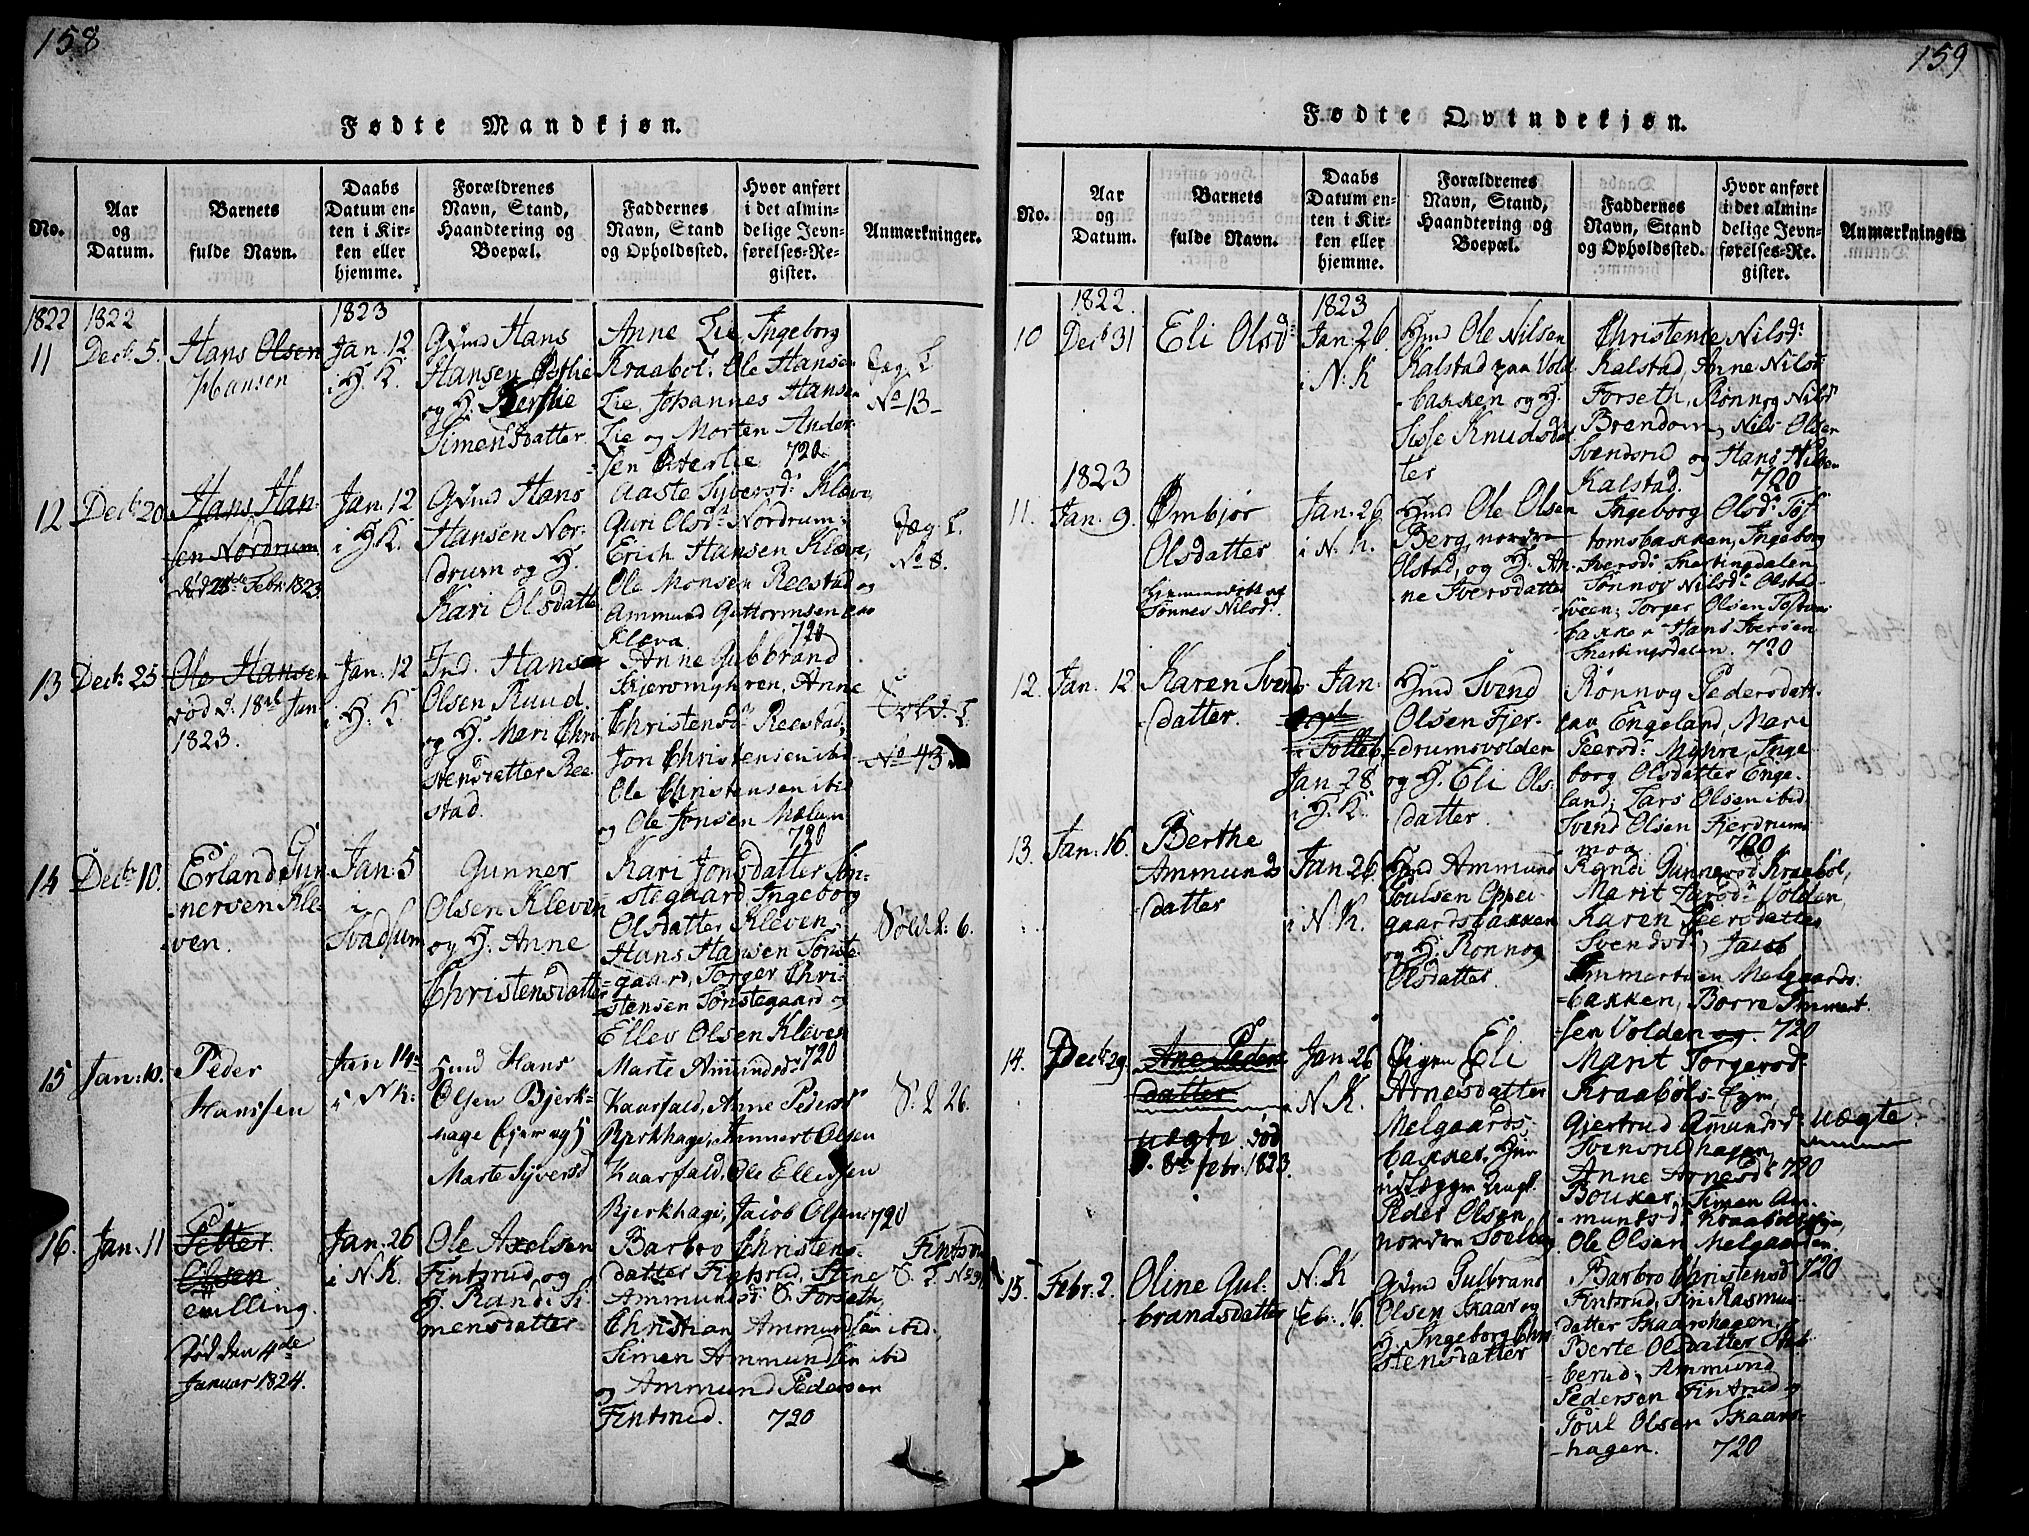 158
Fødte Mandkjøn.
No.
Aar
og
Datum.
Barnets
fulde Navn.
Daabs
Datum en-
ten i Kir-
ken eller
hjemme.
Forældrenes
Navn, Stand,
Haandtering og
Boepæl.
Faddernes
Navn, Stand
og Opholdssted.
Hvor anført
i det almin-
delige Jevn-
førelses-Re-
gister.
Anmærkninger.
1822
11
1822
Decb. 5.
Hans Olsen
Hansen
1823
Jan: 12
i H. K.
Hans
Hansen Østlie
og H.
Simensdatter
Anne Lie, Ingeborg
Kraabøl. Ole Hansen
Lie, Johannes Hansen
Lie og Morten Ander-
sen Østerlie 720
No 13-
12
Decb. 20
Hans Han-
sen Nordrum
Febr: 1823
Jan: 12
i H. K.
Hans
Hansen Nor-
drum og H.
Kari Olsdatter
Aaste Syversd: Kleve,
Guri Olsd: Nordrum,
Erich Hansen Kleve,
Ole Monsen Reestad og
Ammund Guttormsen
Kleva 720
No 8.
13
Decb: 25
Ole Hansen
død d: 18de Jan
1823.
Jan: 12
i H. K
Ind. Hans
Olsen Ruud
og H. Mari Chri-
stensdatter Ree-
stad.
Anne Gulbrand
Skjersmyhren, Anne
Christensd: Reestad,
Jon Christensen ibid
Ole Christensen ibid
og Ole Jonsen Melum
720
No 43
14
Decb: 10.
Erland Gun-
nersen Kle-
ven.
Jan: 5
i
Svadsum
Gunner
Olsen Kleven
og H. Anne
Christensdatter
Kari Jonsdatter Søn-
stegaard, Ingeborg
Olsdatter Kleven
Hans Hansen Sønste-
gaard, Torger Chri-
stensen Sønstegaard og
Ellev Olsen Kleven
720
15
Jan: 10.
Peder
Hanssen
Jan 14
i NK:
Huusmd Hans
Olsen Bjerk-
hage
Marte Syversd
Marte Amundsd:
Kaarfald, Anne Pedersd
Bjerkhage, Ammert Olsen
Kaarfald, Ole Ellefsen
Bjerkhage, Jacob Olsen 720
16.
Jan: 11
Petter
Olsen
tvilling.
død den 4de
Januar 1824.
Jan: 26
i N. K.
Ole Axelsen
Fintsrud, og
H. Randi Si-
mensdatter
Barbro Christens-
datter Fintsrud, Stine
Ammundsd: Forseth,
Christian Ammundsen ibid,
Simen Ammundsen ibid
og Ammund Pedersen
Fintsrud. 720
159
Fødte Qvindekjøn.
No.
Aar
og
Datum.
Barnets
fulde Navn.
Daabs
Datum en-
ten i Kir-
ken eller
hjemme.
Forældrenes
Navn, Stand,
Haandtering og
Boepæl.
Faddernes
Navn, Stand
og Opholdssted.
Hvor anført
i det almin-
delige Jevn-
førelses-Re-
gister.
Anmærkninger.
10
1822.
Decb 31
Eli Olsd:
1823
Jan: 26
i N. K
Ole Nilsen
Kalstad paa Vold-
bakken og H.
Sisse Knudsdat-
ter
Christense Nilsd:
Kalstad, Anne Nilsd:
Forseth, Rønnog Nilsd
Brendom, Nils Olsen
Svendsrud og Hans Nilsen
Kalstad. 720
11.
1823
Jan: 9.
Ømbjør
Olsdatter
Hjemmedøbt af
Tønnes Nilsd:
Jan: 26
i N. K.
Ole Olsen
Berg, nordre
Olstad, og H. An-
ne Iversdatter
Ingeborg Olsd: Tof-
tomsbakken, Ingeborg
Iversd: Snertingdalen
Tønnes Nilsd: Olsta-
sveen, Torger Olsen Toftoms-
bakken Hans Iversen
Snertingsdalen. 720
12.
Jan: 12
Karen Svends-
datter.
Jan:
Jan 28
i H. K.
Svend
Olsen Fjer-
drumsvolden
og H. Eli Ols-
datter.
Rønnog Pedersdatt.
paa Engeland, Mari
Peersd: Myhre, Inge-
borg Olsdatter Enge-
land; Lars Olsen ibid
Svend Olsen Fjerdrums
moa. 720
13.
Jan: 16.
Berthe
Ammunds-
datter
Jan: 26
i N. K.
Ammund
Poulsen Oppe-
gaardsbakken
og H. Rønnog
Olsdatter.
Randi Gunnersd: Kraabøl,
Marit Larsd: Volden,
Karen Peersdatter
Svendsd:, Jacob
Ammertsen Melgaards-
bakken, Borre Ammert-
sen Volden og 720
14.
Decb: 29.
Ane Peders
datter
uægte død
d. 8de febr: 1823.
Jan: 26
N. K.
Pigen Eli
Arnesdatter
Melgaards-
bakken,
udlægger Ungk.
Peder Olsen
nordre Soelberg
Marit Torgersd:
Kraabøls Ejm,
Gjertrud Amundsd:
Svensrudhagen,
Anne Arnesd: 720
Simen Am-
mundsd: Kraabøls Ejm,
Ole Olsen Melgaarden.
uægte
15.
Febr: 2.
Oline Gul-
brandsdatter
N. K
Febr. 16.
Gulbrand
Olsen Skaar og
H. Ingeborg Chri-
stensdatter
Barbro Christensd 720
Fintsrud, Siri Rasmus-
datter Skaarshagen,
Berte Olsdatter
berud, Ammund
Pedersen Fintsrud og
Poul Olsen Skaars-
hagen. 720